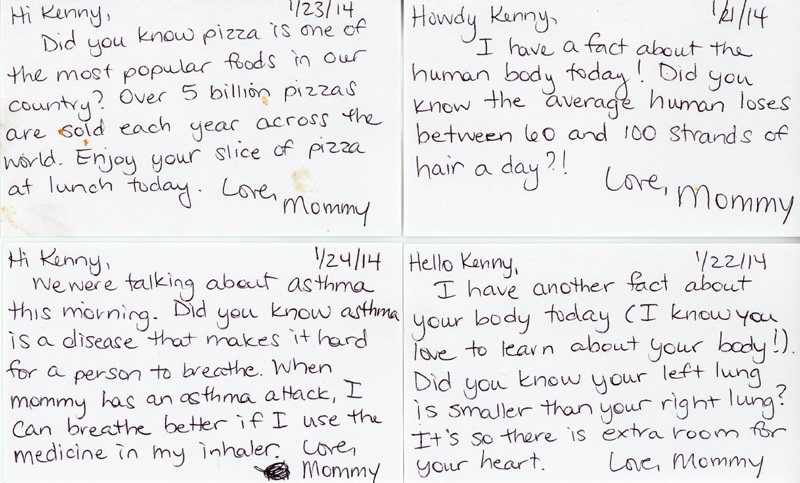 Hi Kenny, 1/23/14
Did you know pizza is one of
the most popular foods in our
country? Over 5 billion pizzas
are sold each year across the
world. Enjoy your slice of pizza
at lunch today. Love,
Mommy
Howdy Kenny, 1/21/14
I have a fact about the
human body today! Did you
know the average human loses
between 60 and 100 strands of
hair a day?!
Love,
Mommy
Hi Kenny, 1/24/14
We were talking about asthma
this morning. Did you know asthma
is a disease that makes it hard
for a person to breathe. When
mommy has an asthma attack, I
can breathe better if I use the
medicine in my inhaler. Love,
Mommy
Hello Kenny, 1/22/14
I have another fact about
your body today (I know you
love to learn about your body!).
Did you know your left lung
is smaller than your right lung?
It's so there is extra room for
your heart. Love, Mommy